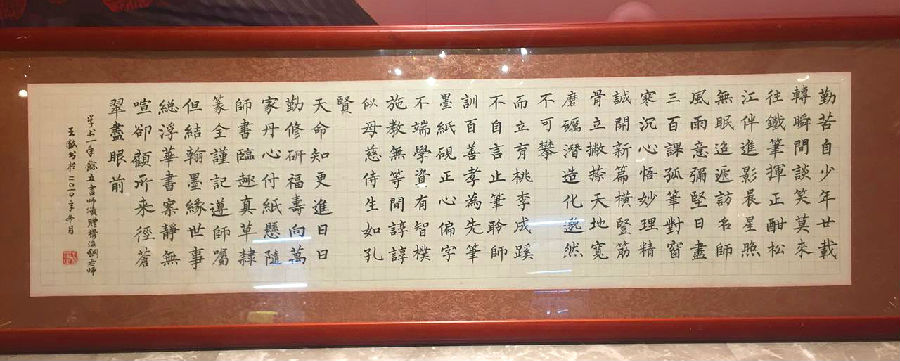 勤苦自少年廿載
轉瞬間談笑莫來
往鐵筆揮正酣松
江伴進影晨星照
無眠追遞訪名師
風雨意彌堅日盡
三百課孤筆對窗
寒沉心悟妙理精
誠開新篇橫豎筋
骨立撇捺天地寬
磨礪潛造化邈然
不可攀
而立育桃李成蹊
不自言止筆聆師
訓百善孝為先筆
墨紙硯正心偏字
不端學資有智樸
施教無等閒諄諄
似母慈侍生如孔
賢
天命知更進日日
勤修研福壽向萬
家丹心付紙懸隨
師書臨趣真草隸
篆全謹記導師囑
但結翰墨緣世事
總浮華書案靜無
喧卻顧所來徑蒼
翠盡眼前